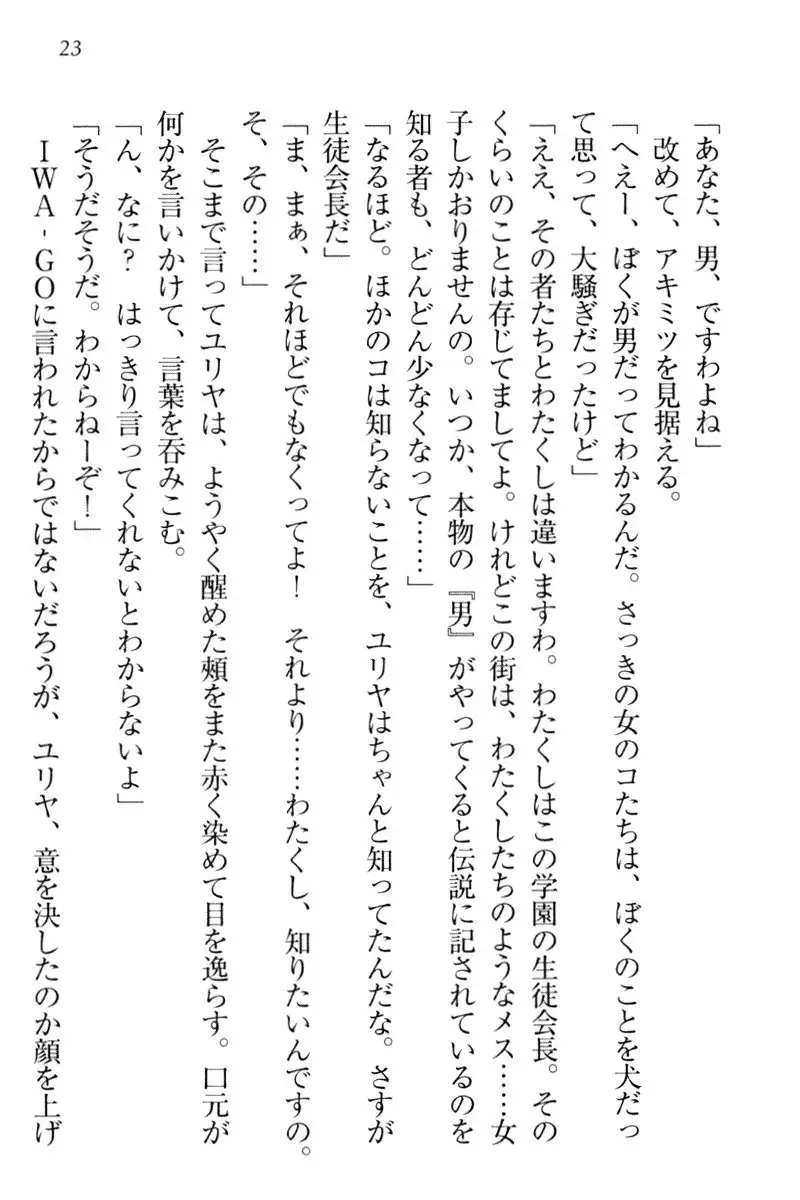 23
「あなた、男、ですわよね」
　改めて、アキミツを見据える。
「へえー、ぼくが男だってわかるんだ。さっきの女のコたちは、ぼくのことを犬だっ
て思って、大騒ぎだったけど」
「ええ、その者たちとわたくしは違いますわ。わたくしはこの学園の生徒会長。その
くらいのことは存じてましてよ。けれどこの街は、わたくしたちのようなメス……女
子しかおりませんの。いつか、本物の『男』がやってくると伝説に記されているのを
知る者も、どんどん少なくなって……」
「なるほど。ほかのコは知らないことを、ユリヤはちゃんと知ってたんだな。さすが
生徒会長だ」
「ま、まぁ、それほどでもなくってよ！　それより……わたくし、知りたいんですの。
そ、その……」
　そこまで言ってユリヤは、ようやく醒めた頬をまた赤く染めて目を逸らす。口元が
何かを言いかけて、言葉を呑みこむ。
「ん、なに？　はっきり言ってくれないとわからないよ」
「そうだそうだ。わからねーぞ！」
　IWA-GOに言われたからではないだろうが、ユリヤ、意を決したのか顔を上げ